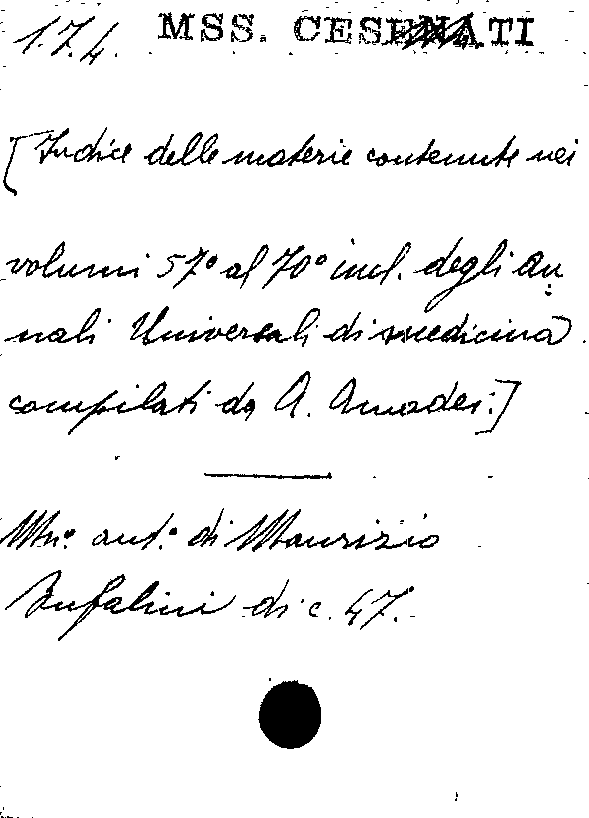 174. MSS. CESENATI
[Indice delle materie contenute nei
volumi 57° al 70° incl. degli an
nali Universali di medicina
compilati da A. Amodei.]
Mn.° aut.° di Maurizio
Bufalini di c. 47.